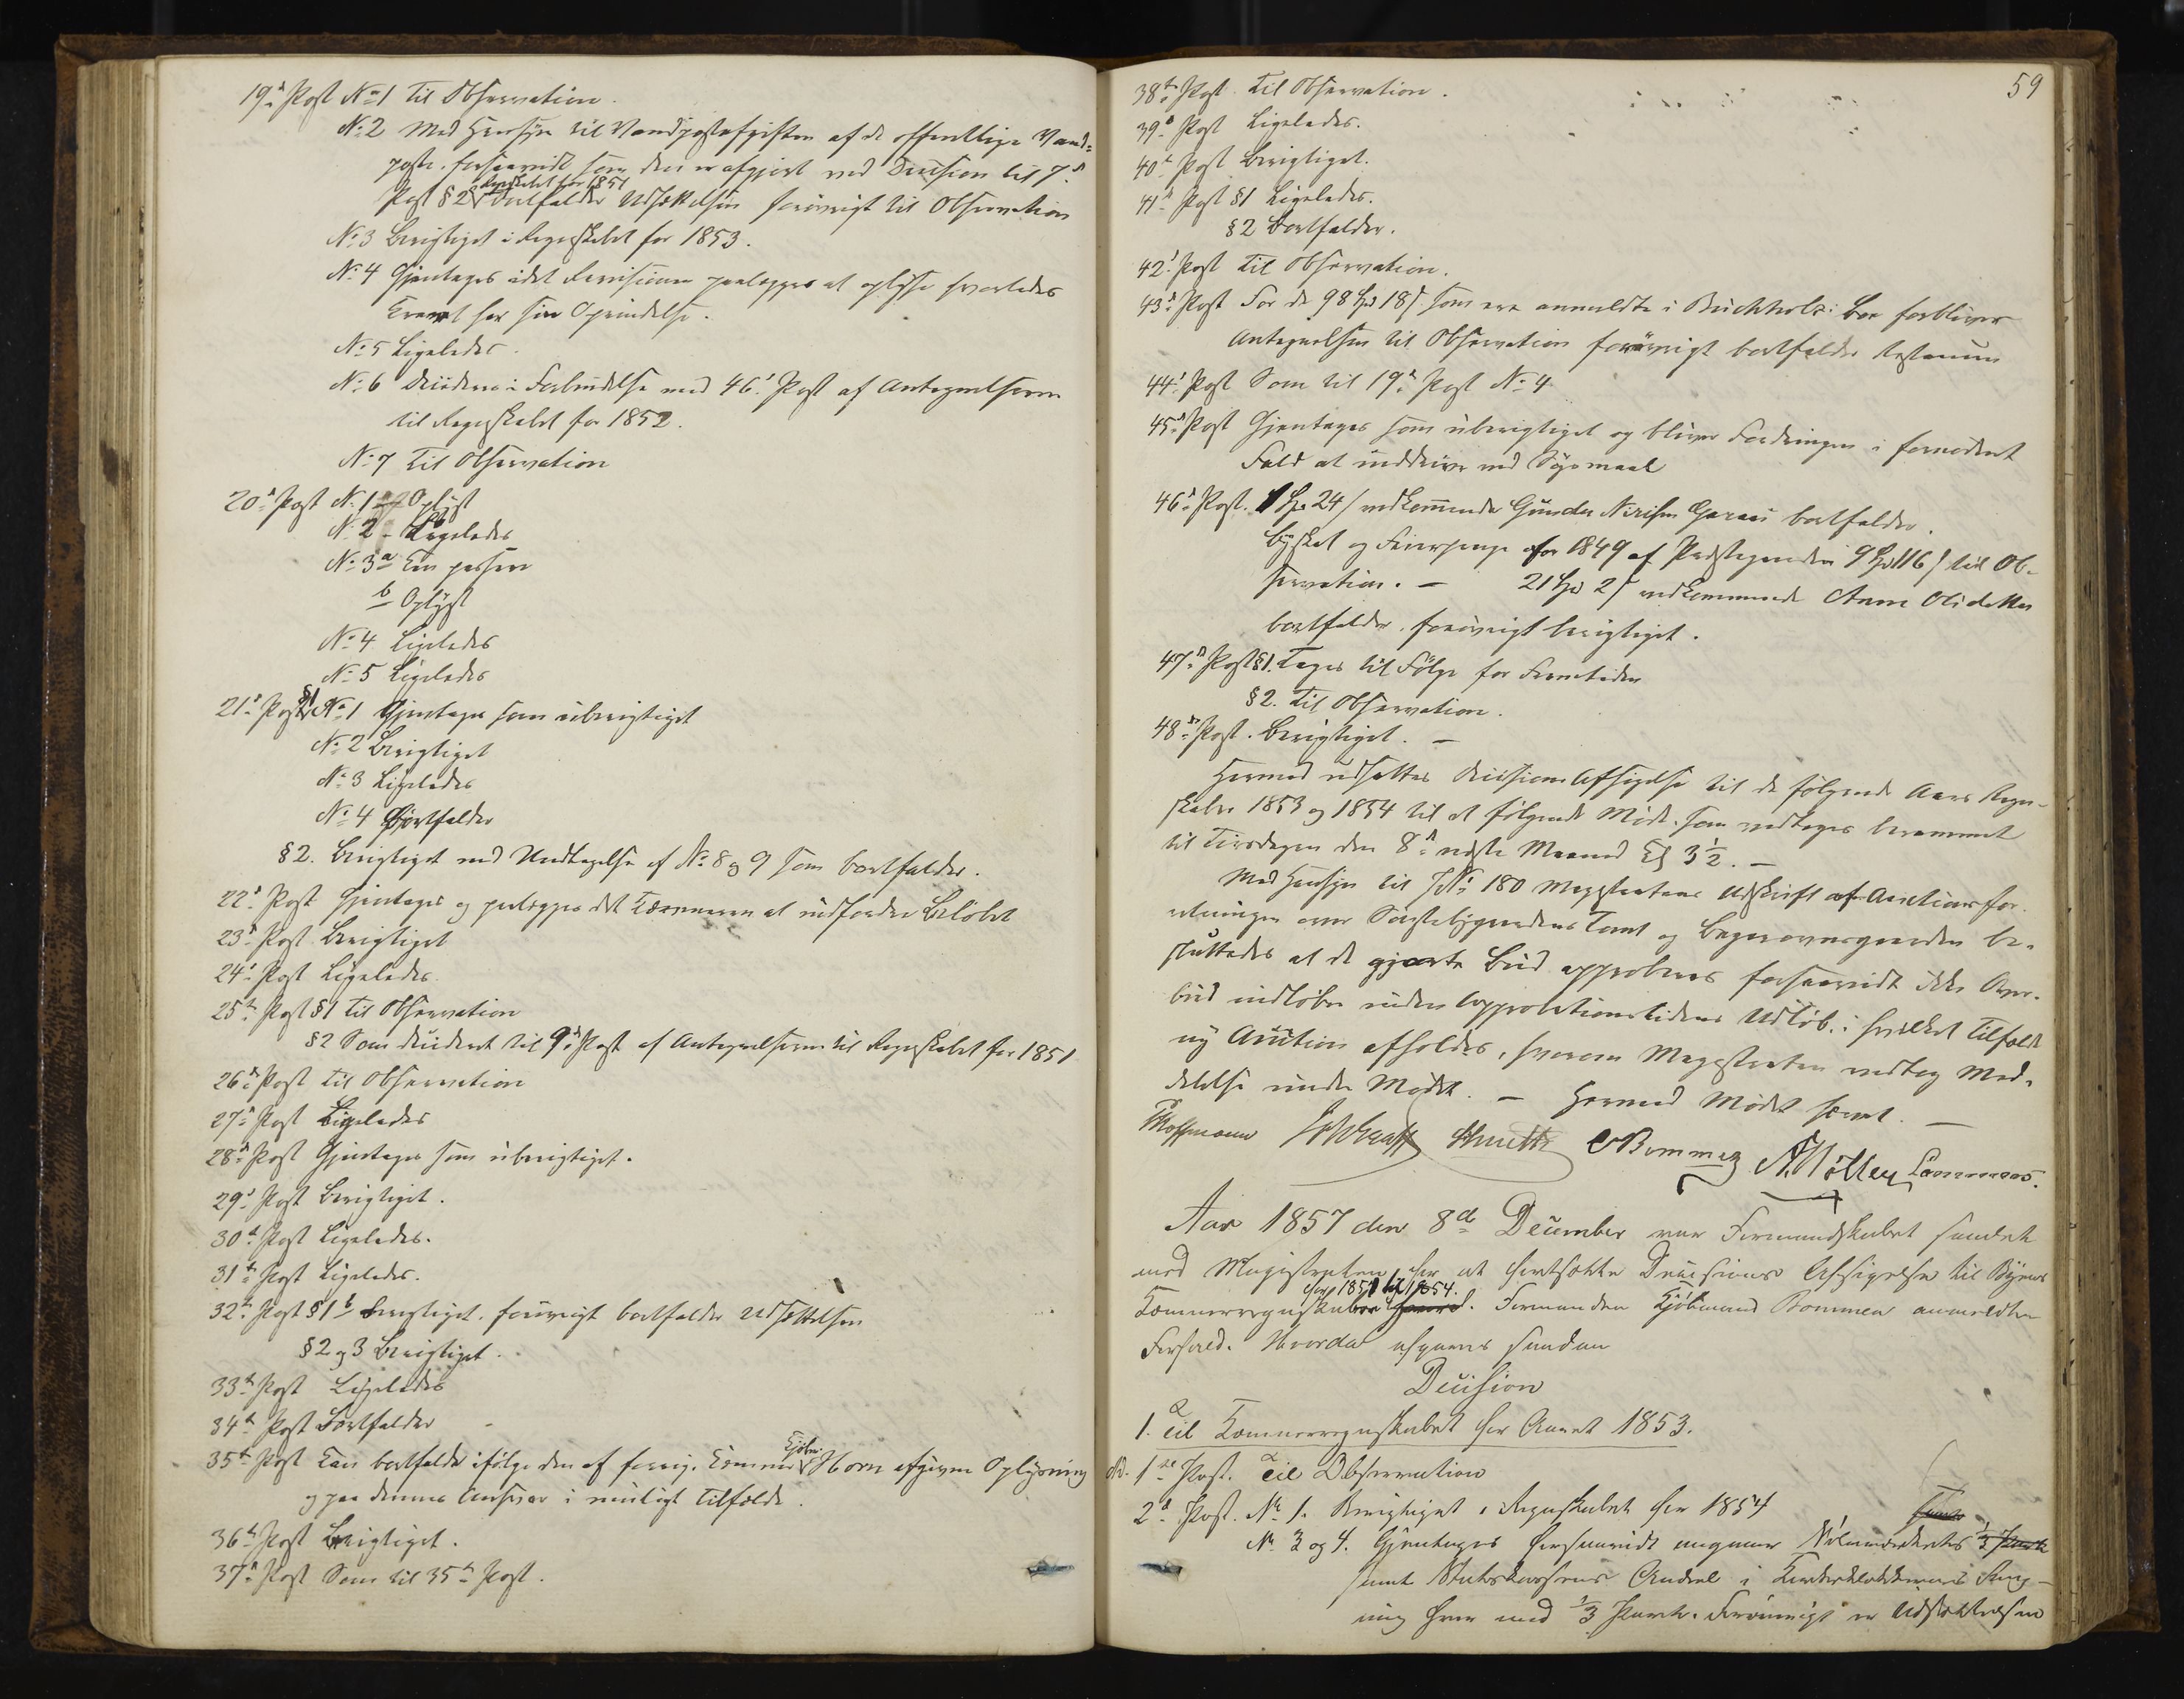 19d Post No 1 Til Observation.
No 2 Med Hensyn til Vandpostafgiften af de offentlige Vand-
poste, forsaavidt som den er afgjort ved Decision til 7d
Post § 2 Regnskabet for 1851 bortfalder Udsættelsen forøvrigt til Observation
No 3 Berigtiget i Regnskabet for 1853.
No 4 Gjentages idet Revisionen paalægges at oplyse hvorledes
Kravet har sin Oprindelse.
No 5 Ligeledes.
No 6 Decideres i Forbindelse med 46d Post af Antegnelserne
til Regnskabet for 1852.
No 7 Til Observation
20d Post No 1 Oplyst
No 2 - Ligeledes
No 3 a Kan passere
b Oplyst
No 4 Ligeledes
No 5 Ligeledes
21d Post §1 No 1 Gjentages som uberigtiget
No 2 Berigtiget
No 3 Ligeledes
No 4 Bortfalder
§ 2. Berigtiget med Undtagelse af No 8 og 9 som bortfalder.
22d Post Gjentages og paalægges det Kæmneren at indfordre Beløbet
23d Post Berigtiget
24d Post Ligeledes.
25d Post § 1 Til Observation
§ 2 Som decideret til 9d Post af Antegnelserne til Regnskabet for 1851
26d Post Til Observation
27d Post Ligeledes
28d Post Gjentages som uberigtiget.
29d Post Berigtiget.
30d Post Ligeledes.
31d Post Ligeledes.
32d Post § 1 b Berigtiget. forøvrigt bortfalder Udsættelsen
§ 2 og 3 Berigtiget.
33d Post Ligeledes
34d Post Bortfalder
35d Post Kan bortfalde ifølge den af forrige Kæmner Kjøbm. Horn afgivne Oplysning
og paa dennes Ansvar i muligt Tilfælde.
36d Post Berigtiget.
37d Post Som til 35d Post.
59
38d Post Til Observation.
39d Post Ligeledes.
40d Post Berigtiget.
41d Post § 1 Ligeledes.
§ 2 Bortfalder.
42d Post Til Observation.
43d Post For de 98 Spd 18 s som ere anmeldte i Buchholz: Boe forbliver
Antegnelsen til Observation forøvrigt bortfalder Restancen
44d Post Som til 19d Post No 4
45d Post Gjentages som uberigtiget og bliver Fordringen i fornødent
Fald at inddrive ved Søgsmaal
46d Post. 1 Spd 24 s vedkommende Gunder Nirisen bortfalder.
Byskat og for 1849 af Præstegaarden 9 Spd 116 s til Ob-
servation. - 21 Spd 2 s vedkommende Anne Olsdatter
bortfalder. forøvrigt berigtiget.
47d Post § 1. Tages til Følge for Fremtiden
§ 2. Til Observation.
48d Post. Berigtiget. -
Hermed udsattes Decisions Afsigelse til de følgende Aars Regn-
skaber 1853 og 1854 til et følgende Møde, som vedtages berammet
til Tirsdagen den 8d næste Maaned Kl 3½. -
Med Hensyn til JNo 180 Magistratens Udskrift af Auctionsfor-
retningen over Tomt og be-
sluttedes at de gjorte Bud approberes forsaavidt ikke Over-
bud indløber inden Approbationstidens Udløb, i hvilket Tilfælde
ny Auction afholdes, hvorom Magistraten vedtog Med-
delelse under Mødet. - Hermed Mødet hævet. -
CBommen A. Møller Lammers.
Aar 1857 den 8de December var Formandskabet samlet
med Magistraten for at fortsætte Decisions Afsigelse til Byens
Kæmnerregnskaber for 1851 til 1854. Formanden Kjøbmand Bommen anmeldte
Forfald. Hvorda afgaves saadan
Decision
1. til Kæmnerregnskabet for Aaret 1853.
1ste Post. Til Observation
2d Post. No 1. Berigtiget i Regnskabet for 1854
No 3 og 4. Gjentages forsaavidt angaaer
samt Statskassens Andeel i
ning hver med 1/3 Part. Forøvrigt er Udsættelsen